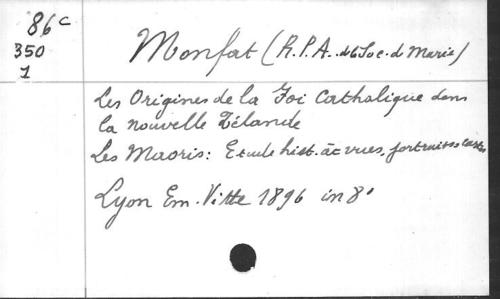 86c
350
1
Monfat (R.P.A. de la Soc. de Marie)
Les Origines de la Foi Catholique dans
la nouvelle Zélande
Les Maoris: Etude hist. avec vues, portraits cartes
Lyon Em. Vitte 1896 in 8°